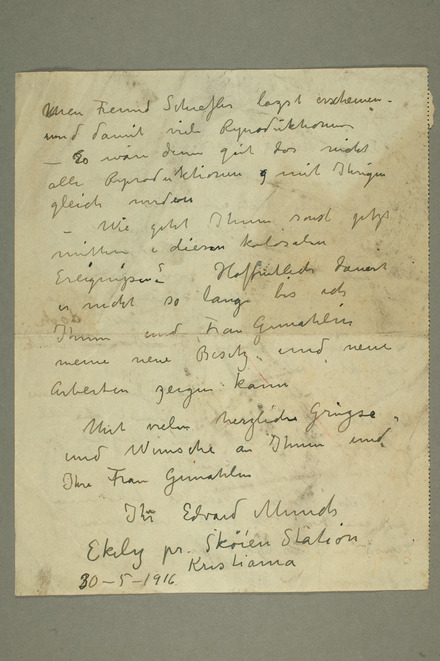 Ihren Freund Schiefler lasst erscheinen –
und damit viele Reproduktionen
– Es wäre denn gut das nicht
alle Reproduktionen mit Ihrigen
gleich wurden
– Wie geht Ihnen sonst jetzt
mitten i diesen kolosalen
Ereignissen? Hoffentlich dauert
es nicht so lange bis ich
Ihnen und Frau Gemahlin
meine neue Besitz und neue
Arbeiten zeigen kann
Mit vielen herzliche Grüsse
und Wunsche an Ihnen und
Ihre Frau Gemahlin
Ihr Edvard Munch
Ekely pr. Skøien Station
Kristiania
30–5–1916